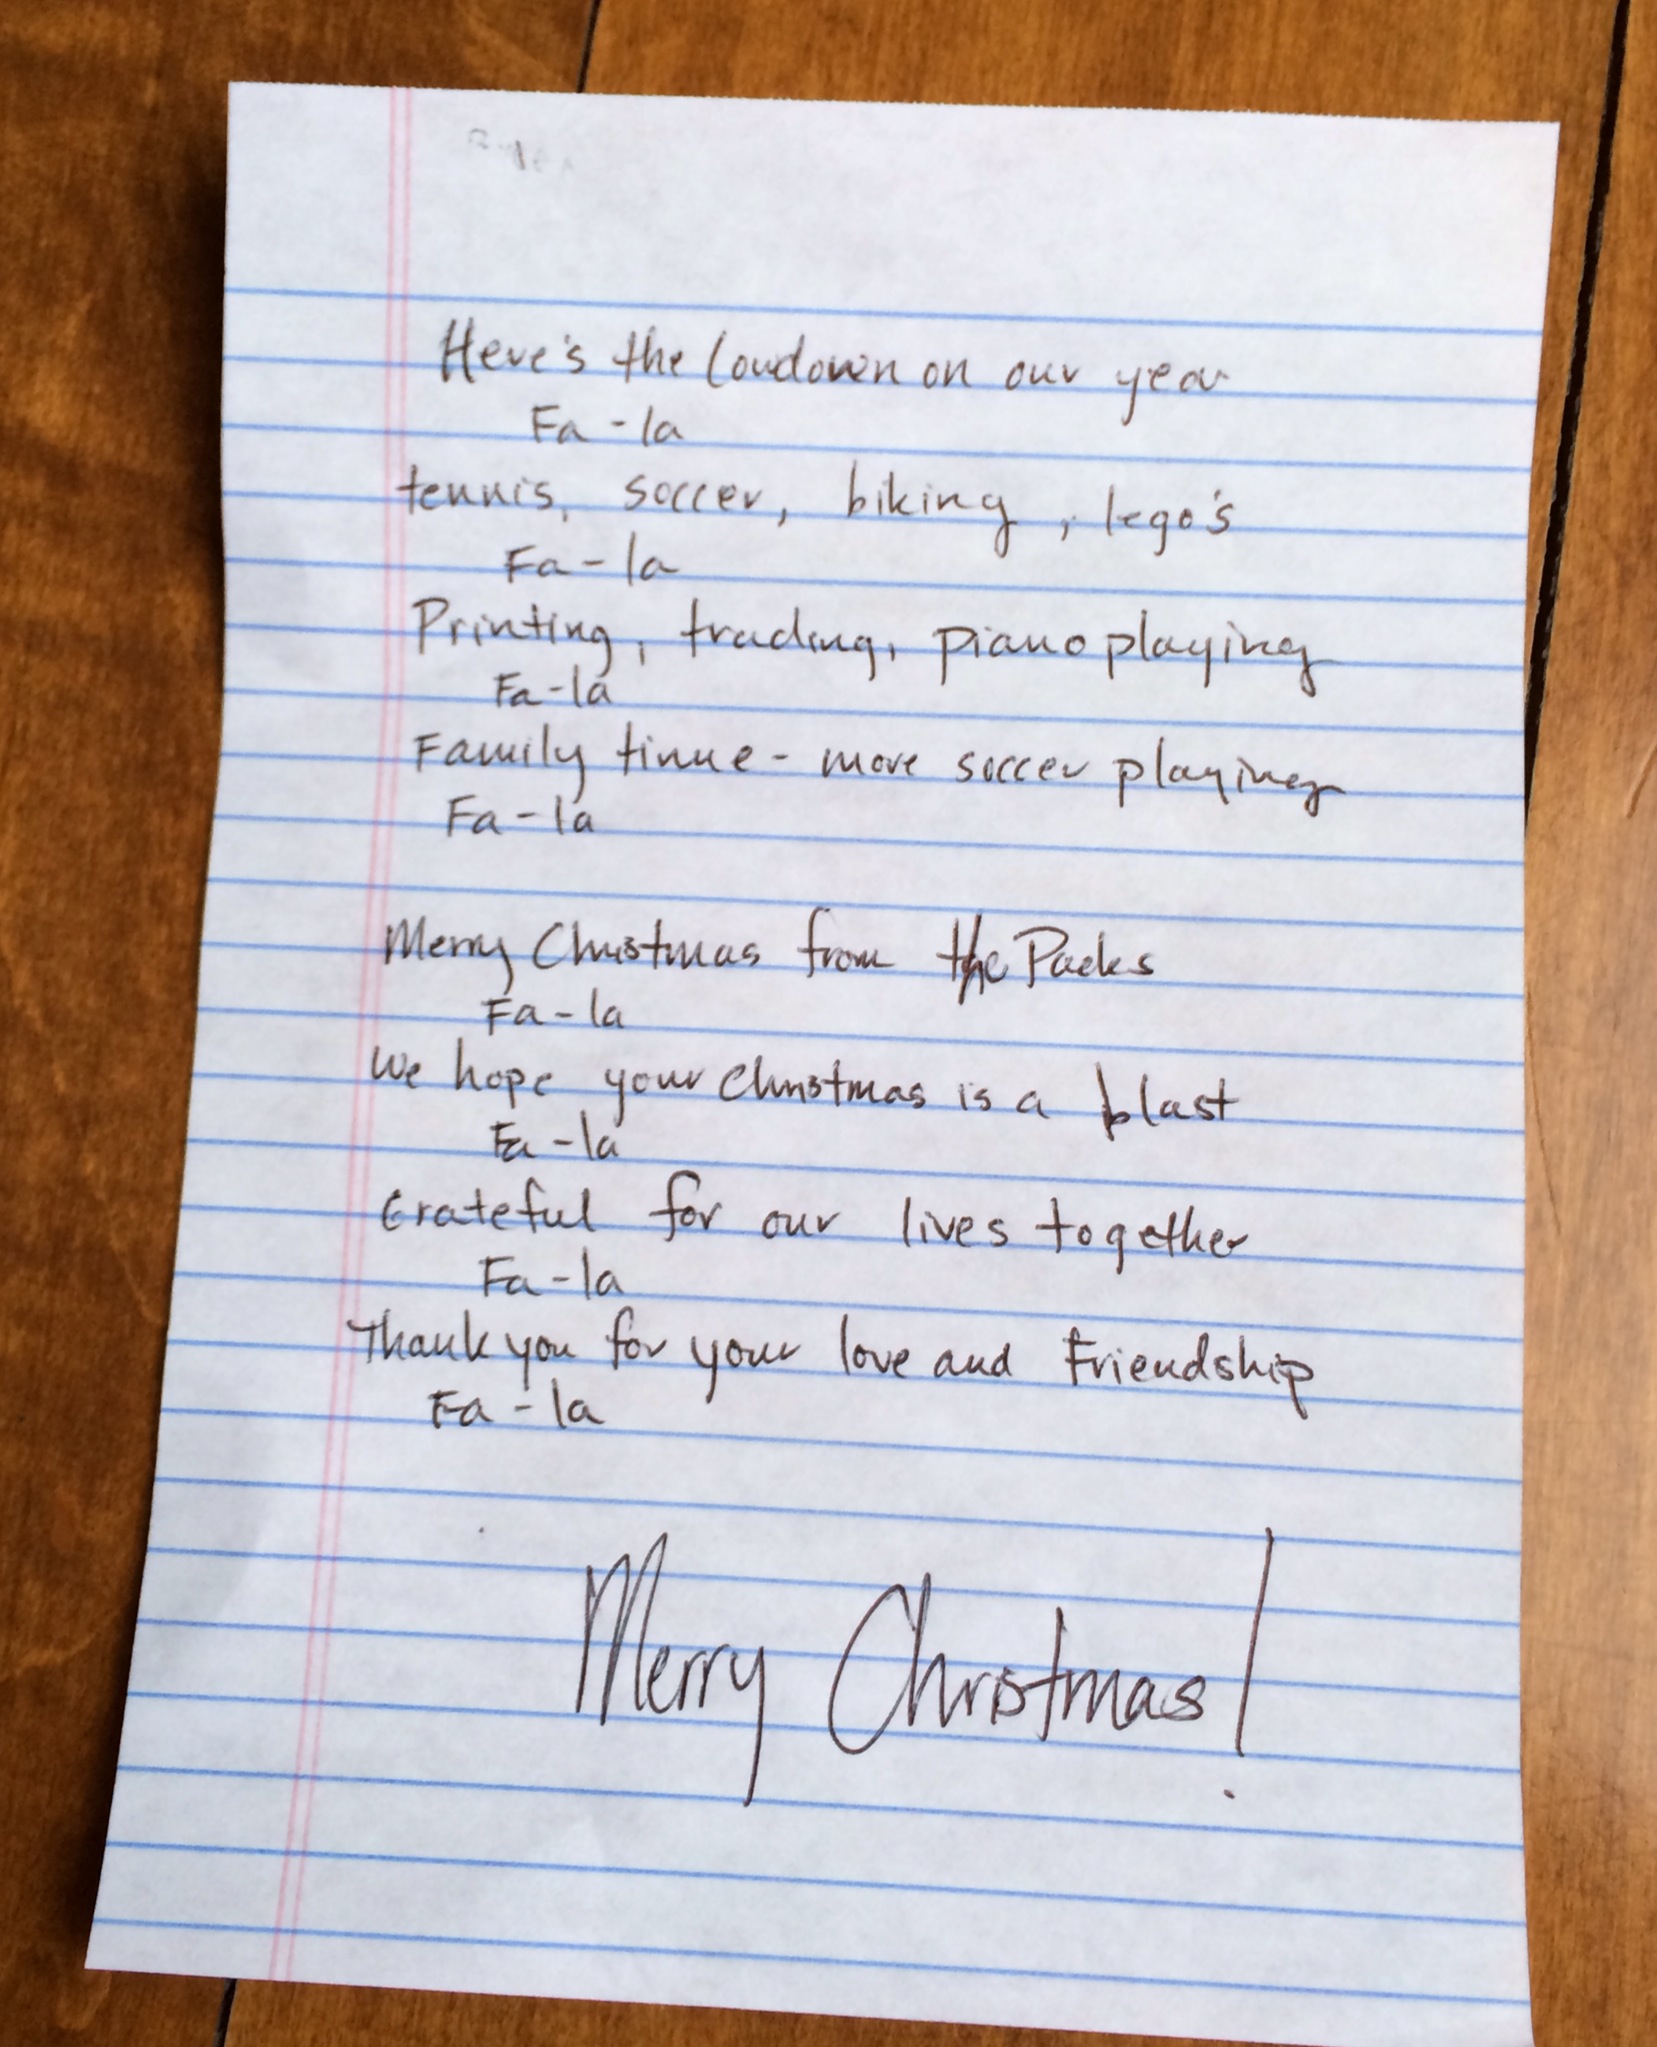 Here's the lowdown on our year
Fa-la
tennis, soccer, biking, lego's
Fa-la
Printing, trading, piano playing
Fa-la
Family time - more soccer playing
Fa-la
Merry Christmas from the Packs
Fa-la
We hope your Christmas is a blast
Fa-la
Grateful for our lives together
Fa-la
Thank you for your love and Friendship
Fa-la
Merry Christmas!